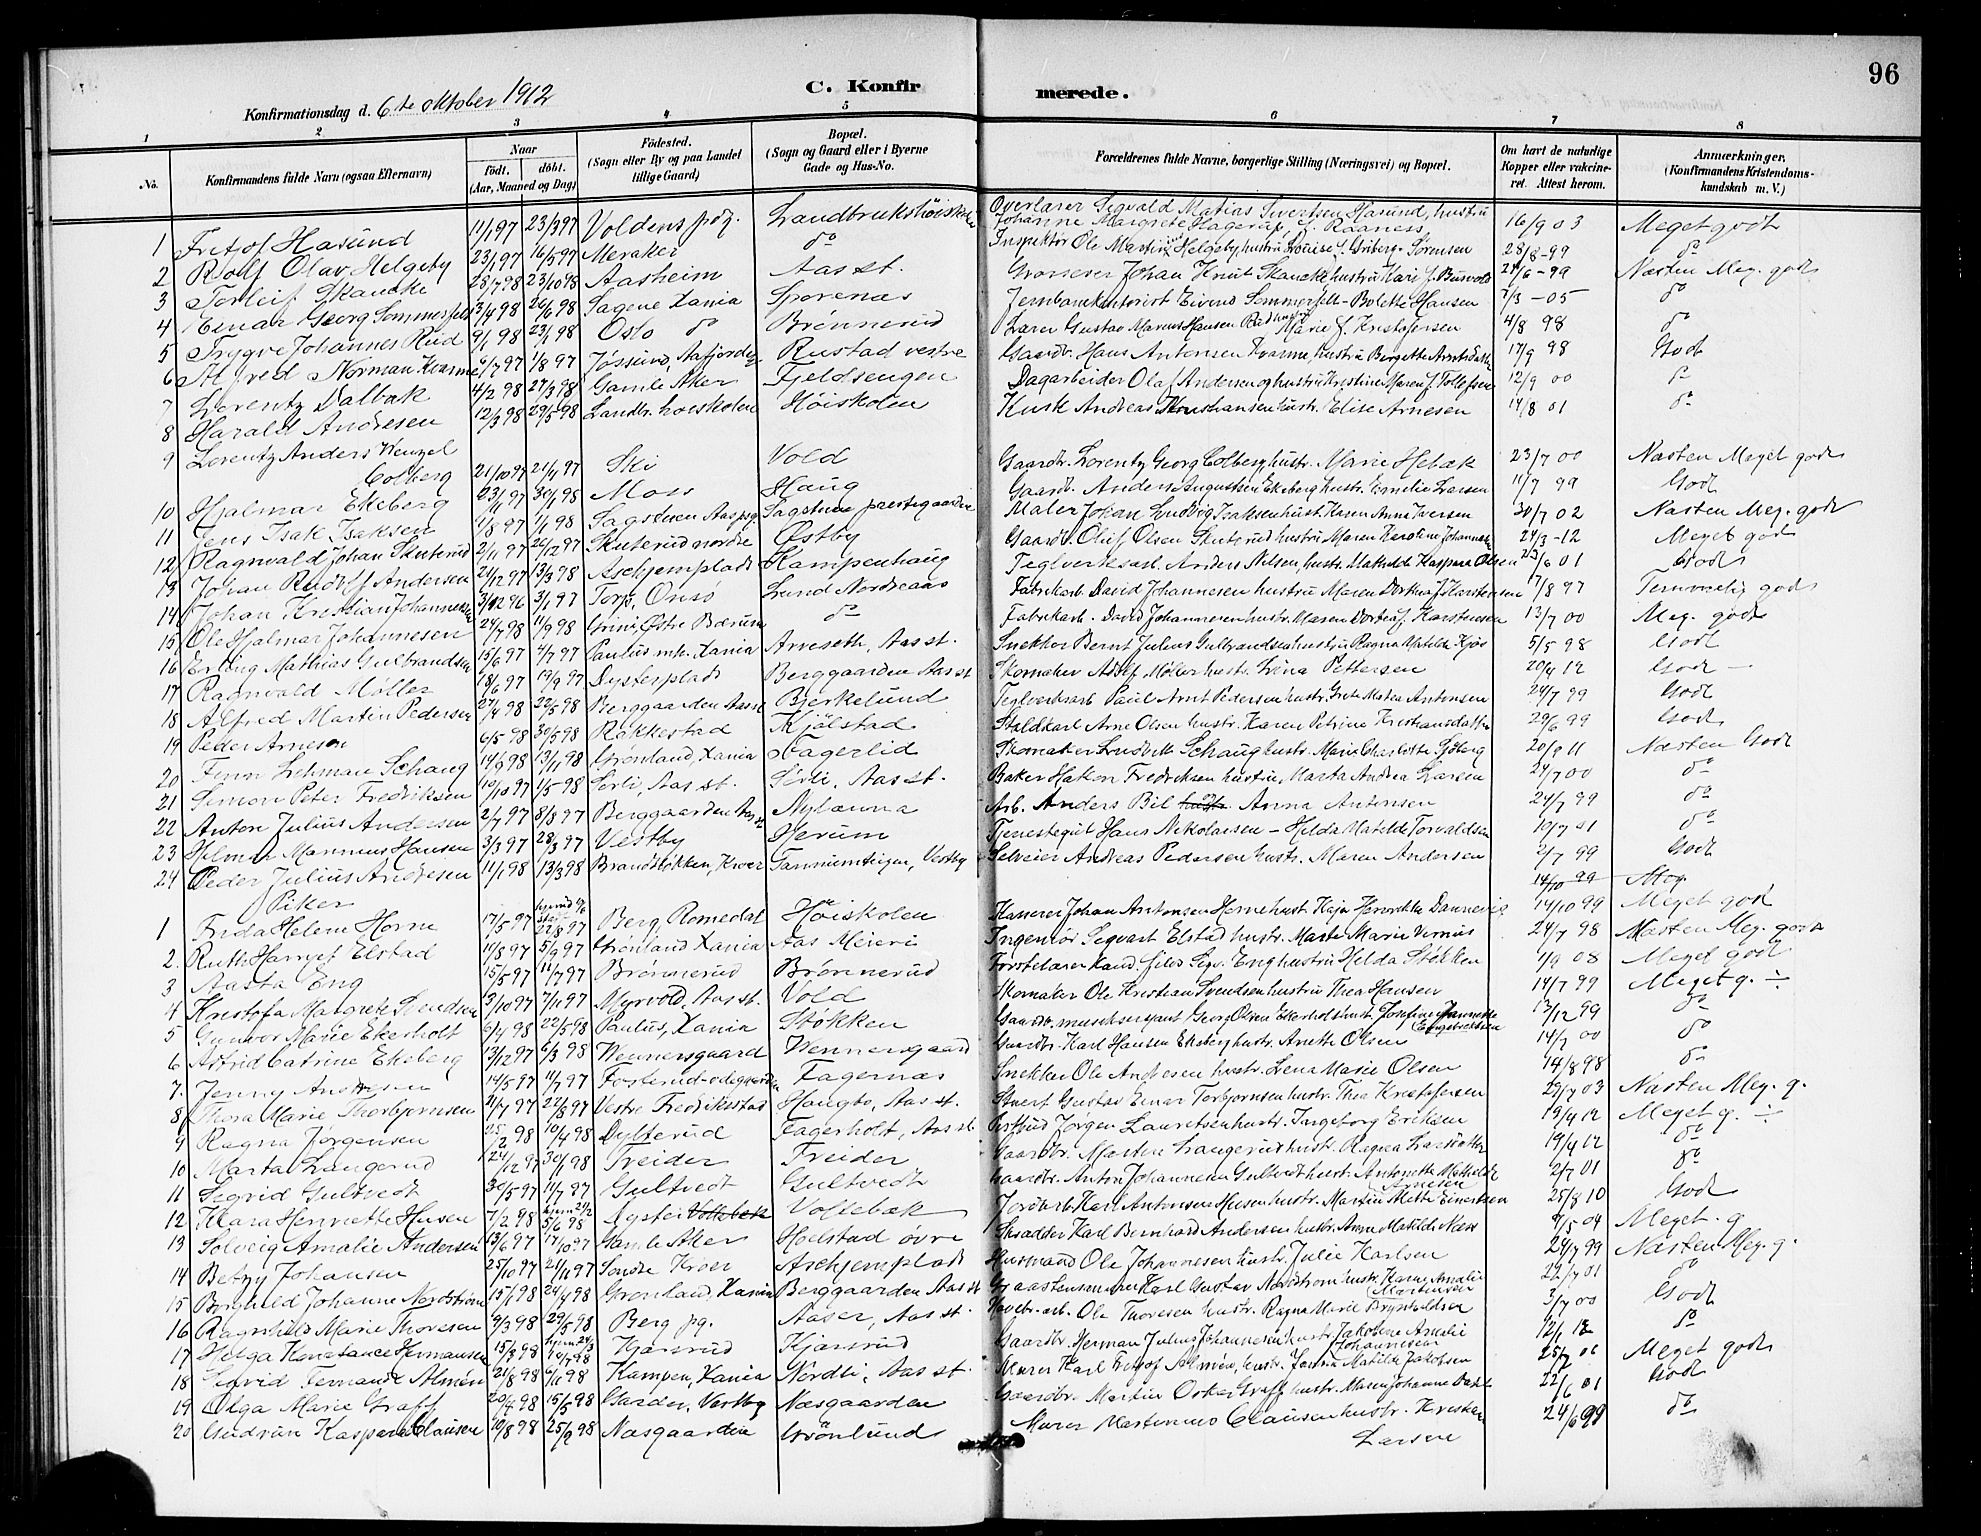 96
Konfirmationsdag d. 6te oktober 1912
C. Konfirmerede.
1 2 3 4 5 6 7 8
No.
Konfirmandens fulde Navn (ogsaa Efternavn)
Naar
født. døbt.
(Aar, Maaned og Dag)
Fødested.
(Sogn eller By og paa Landet
tillige Gaard)
Bopæl.
(Sogn og Gaard eller i Byerne
Gade og Hus-No.
Forældrenes fulde Navne, borgerlige Stilling (Næringsvei) og Bopæl.
Om havt de naturlige
Kopper eller vakcine-
ret. Attest herom.
Anmærkninger.
(Konfirmandens Kristendoms-
kundskab m. V.)
1 Fritof Hasund 11/1 97 23/3 97 Voldens pdg. Landbrukshøiskolen Overlærer Sigvald Matias Sivertsen Hasund, hustru Johanne Margrete Hagerup, f. Raaness 16/9 03 Meget godt
2 Rolf Olav Helgeby 23/1 97 16/5 97 Meraker do Inspektør Ole Martin Helgeby, hustru Louise f. Griberg Sørensen 28/8-99 do
3 Torleif Skancke 28/7 98 23/10 98 Aasheim Aas st. Grosserer Johan Knut Skancke hustru Kari f. 29/6-99 Næsten Meg. godt
4 Einar Georg Sommerfelt 3/4 98 26/6 98 Sagene Xania Sporenas Jernbanekontorist Eivind Sommerfelt - Bolette Hansen 7/3-05 do
5 Trygve Johannes Rud 9/1 98 23/1 98 Oslo do Brønnerud Lærer Gustav Marius Hansen Rud hustru Marie f. Kristofersen 4/8 98 do
6 Alfred Norman Kvamme 6/7 97 1/8 97 Jøssund, Aafjorden Rustad vestre Gaardbr. Hans Antonsen Kvamme, hustru Bergette 17/9 98 Godt
7 Lorentz Dalbak 4/2 98 27/3 98 Gamle Aker Fjeldsengen Dagarbeider Olaf Andersen og hustru Kristine Maren f. Tollefsen 12/9 00 do
8 Harald Andresen 12/3 98 29/5 98 Landbr. høiskolen Høiskolen Kusk Andreas Kristiansen hustr. Elise Arnesen 14/8 01 do
9 Lorentz Anders Wenzel
Colberg 21/10 97 21/11 97 Ski Vold Gaardbr. Lorentz Georg Colberg hustr. Marie Hebæk 23/7 00 Næsten Meget godt
10 Hjalmar Ekeberg 23/11 97 30/1 98 Moss Haug Gaardb. Anders Augustsen Ekeberg hustr. Emelie Larsen 11/7 99 Godt
11 Jens Isak Isaksen 11/8 97 1/1 98 Sagstuen Aas pg. Sagstuen prestegaarden Maler Johan Ludvig Isaksen hust. Karen Anna Iversen 30/7 02 Næsten Meg. godt
12 Ragnvald Johan Skuterud 2/11 97 26/12 97 Skuterud nordre Østby Gaardb. Oluf Olsen Skuterud hustru Maren Karoline 24/3-12 Meget godt
13 Johan Rudolf Andersen 21/12 97 13/3 98 Askjemplads Kampenhaug Teglverksarb. Anders Nilsen, hustr. Mathilde Kaspara Olsen 23/6 01 Godt
14 Johan Kristian Johannesen 3/12 96 3/1 97 Torp, Onsø Lund Nordreaas Fabrikarb. David Johannesen hustru Maren Dorthea f. Karstensen 17/8 97 Temmelig godt
15 Ole Hjalmar Johannesen 24/7 98 11/9 98 Grini Østre Bærum do Fabrikarb. David Johannesen hustr. Maren Dortea f. Karstensen 13/7 00 Meg. godt
16 Erling Mathias Gulbrandsen 15/6 97 4/7 97 Paulus mh. Xania Arneseth, Aas st. Snekker Bernt Julius Gulbrandsen hustru Ragna Matilde Kjøs 5/5 98 Godt
17 Ragnvald Møller 18/6 97 19/9 97 Dysterplads Berggaarden Aas st Skomaker Adolf Møller hustr. Lina Pettersen 20/4 12 Godt -
18 Alfred Martin Pedersen 27/4 98 22/5 98 Berggaarden Aas st Bjerkelund Teglverksarb. Paul Arnt Pedersen hustr. Grete Maten Antonsen 24/7 99 Godt
19 Peder Arnesen 6/5 98 30/5 98 Rakkestad Kjølstad Staldkarl Arne Olsen hustr. Karen Petrine Kristiansdatter 29/6 99 Godt
20 Finn Lehman Schaug 14/6 98 13/11 98 Grønland, Xania Fagerlid Skomaker Ludvik Schaug hustr. Marie Charlotte Sjøberg 20/8 11 Næsten Godt
21 Simon Peter Fredriksen 10/10 97 1/5 98 Serli, Aas st. Serli, Aas st. Baker Hakon Fredriksen hustru, Marta Andrea Larsen 24/7 00 do
22 Anton Julius Andersen 2/7 97 8/8 97 Berggaarden Aas st Nylænna Arb. Anders Bil Anna Antonsen 24/7 99 do
23 Helmer Marinius Hansen 3/3 97 28/3 97 Vestby Herum Tjenestegut Hans Nikolaisen - Helda Matilde Torvaldsen 10/7 01 do
24 Peder Julius Andresen 11/1 98 13/3 98 Brandstikken, Kroer Tannumteigen, Vestby Selveier Andreas Pedersen hustr. Maren Andersen 2/7 99 Godt
Piker 14/10 99 Meg
1 Frida Helene Horne 17/5 97 22/8 97 Berg, Romedal Høiskolen Kasserer Johan Antonsen Horne hust. Kaja Henrikke Dannevig 14/10 99 Meget godt
2. Ruth Harriet Elstad 11/8 97 5/9 97 Grønland Xania Aas Meieri Ingeniør Sigvart Elstad hustr. Marte Marie Vernus 24/7 98 Næsten Meg. godt
3 Aasta Eng 15/5 97 11/7 97 Brønnerud Brønnerud Førstelærer Kand. filos Sigv. Eng hustru Helda Støkken 1/9 08 Meget godt
4 Kristofa Margrete Svendsen 3/10 97 7/11 97 Myrvold, Aas st. Vold Skomaker Ole Kristian Svendsen hustru Thea Hansen 14/7 99 Meget g. ÷
5 Gunvor Marie Ekerholt 6/4 98 22/5 98 Paulus, Xania Støkken Gaardbr. Georg Olsen Ekerholt hust. Josefine Jannette Engebretsen 13/12 99 do
6 Astrid Catrine Ekeberg 13/12 97 6/3 98 Wennersgaard Wennersgaard Gaardbr. Karl Hansen Ekeberg hustr. Anette Olsen 14/7 00 do
7. Jenny Andresen 14/5 97 11/7 97 Fosterud-ødegaarden Fagernæs Snekker Ole Andresen hustr. Lena Marie Olsen 14/8 98 do
8 Thora Marie Thorbjørnsen 21/7 97 22/8 97 Vestre Fredrikstad Haugbo, Aas st. Stuert Gustav Einar Torbjørnsen hustr. Thea Kristofersen 29/7 03 Næsten Meg. g.
9 Ragna Jørgensen 25/2 98 10/4 98 Dytterud Fagerholt, Aas st. Jørgen Lauritsen hustr. Ingeborg Eriksen 19/4 12 Meget g. ÷
10 Marta Langerud 24/12 97 30/1 98 Freider Freider Gaardbr. Morten Langerud hustr. Ragna Larsdatter 19/4 12 do
11 Sigrid Gultvedt 30/5 97 11/7 97 Gultvedt Gultvedt Gaardbr. Anton Johannesen Gultvedt hustr. Antonette Mathilde Arnesen 2/7 01 do
12 Klara Henriette Husen 7/2 98 5/6 98 Dyster Voltebæk Voltebæk Jordarb. Karl Antonsen Husen hustr. Martine Mette Einertsen 25/8 10 Godt
13 Solveig Amalie Andersen 13/6 97 17/10 97 Gamle Aker Holstad øvre Skrædder Karl Bernhard Andersen hustr. Anna Matilde Næss 9/5 04 Meget g.
14 Betzy Johansen 25/10 97 21/11 97 Søndre Kroer Askjemplads Husmand Ole Johannesen hustr. Julie Karlsen 24/7 99 Næsten Meg. g.
15 Borghild Johanne Nordstrøm 15/1 98 24/4 98 Grønland, Xania Berggaarden Aas st Karl Gustav Nordstrøm hustr. Karen Amalie Mortensen 22/7 01 do
16 Ragnhild Marie Thoresen 9/3 98 29/5 98 Berg pg. Aaser, Aas st. Havebr. arb. Ole Thoresen hustr. Ragna Marie 3/7 00 Godt
17 Helga Konstance Hermansen 15/3 98 10/7 98 Kjærsrud Kjærsrud Gaardbr. Herman Julius Johannesen hustr. Jakobine Amalie Johannesen 12/1 12 do
18 Sigrid Fernanda Almén 21/8 98 6/11 98 Kampen, Xania Nordli, Aas st. Murer Karl Fritjof Almén, hustr. Matilde Jakobsen 25/7 06 Meget godt
19 Olga Marie Graff 20/4 98 15/5 98 Garder, Vestby Næsgaarden Gaardbr. Martin Oskar Graff hustr. Maren Johanne Dahl 22/6 01 Godt
20 Gudrun Kaspara Clausen 19/8 98 25/9 98 Næsgaarden Grønlund Murer Martinius Clausen hustr. Kristine
Larsen 24/6 99 do